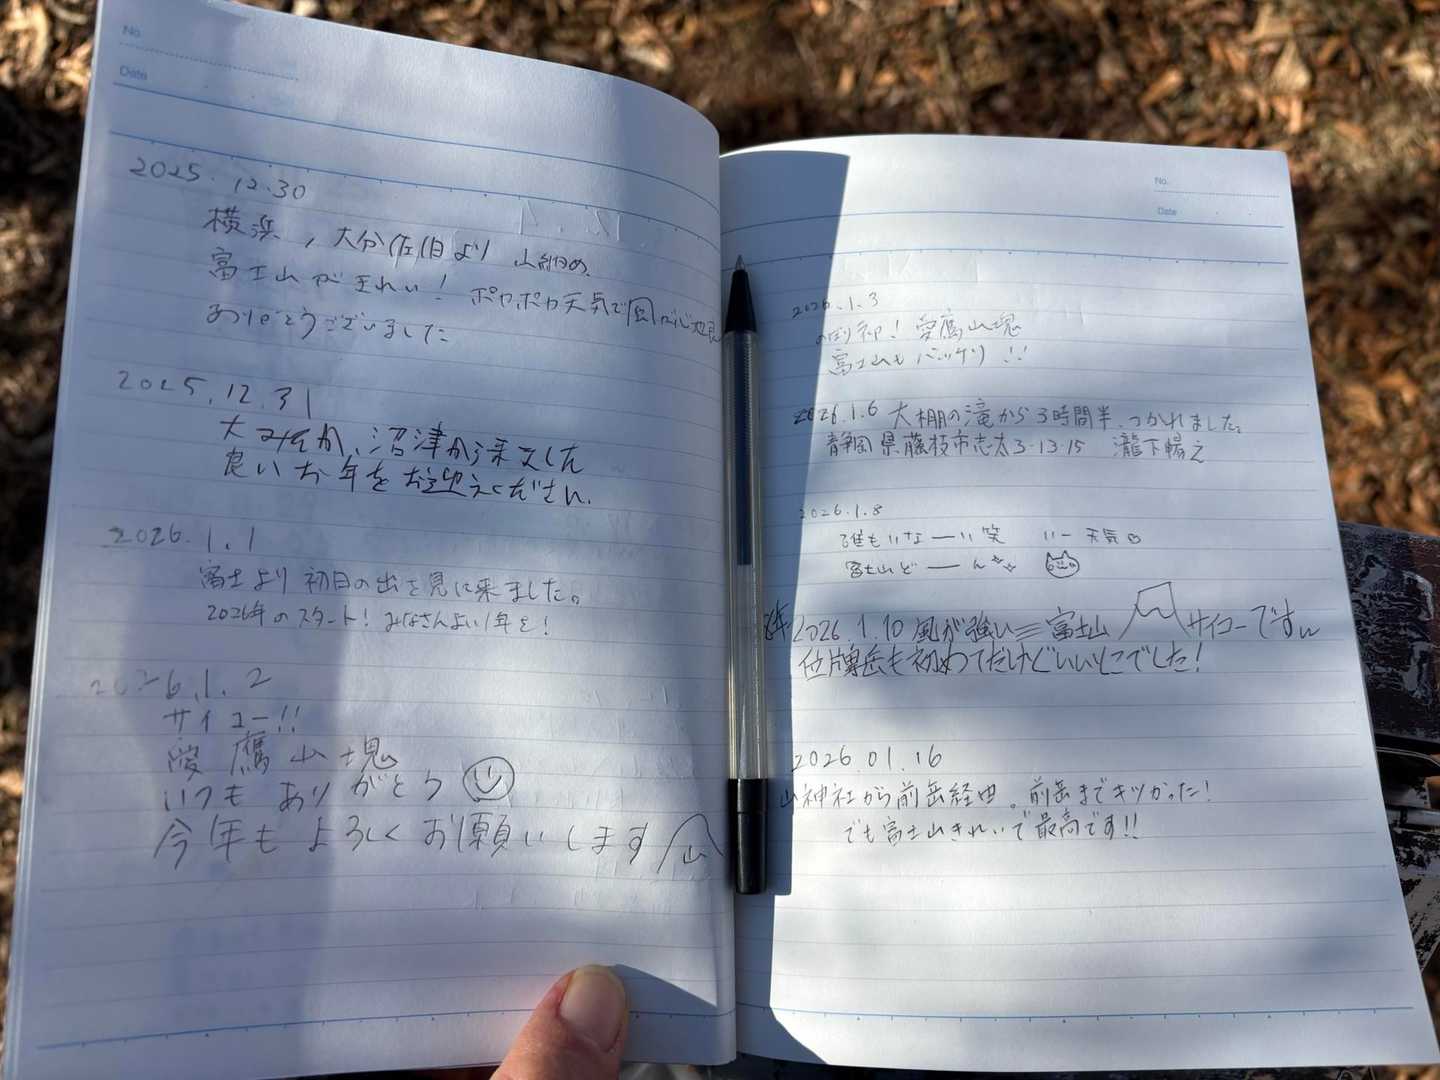 No.
Date
2025.12.30
横浜,大分佐伯より 山納め
富士山がきれい! ポカポカ天気で風が心地良
ありがとうございました
2025.12.31
大みそか、沼津から来ました
良いお年をお迎えください.
2026.1.1
富士より初日の出を見に来ました。
2026年のスタート! みなさんよい1年を!
2026.1.2
サイコー!!
愛鷹山塊
いつもありがとう
今年もよろしくお願いします
山
No.
Date
2026.1.3
初!愛鷹山塊
富士山もバッチリ!!
2026.1.6 大棚の滝から3時間半、つかれました。
静岡県藤枝市志太3-13-15 瀧下暢之
2026.1.8
誰もいなーい笑 いー天気
富士山どーん
2026.1.10 風が強い 富士山 サイコーです
位牌岳も初めてだけどいいとこでした!
2026.01.16
山神社から前岳経由。前岳までキツかった!
でも富士山きれいで最高です!!